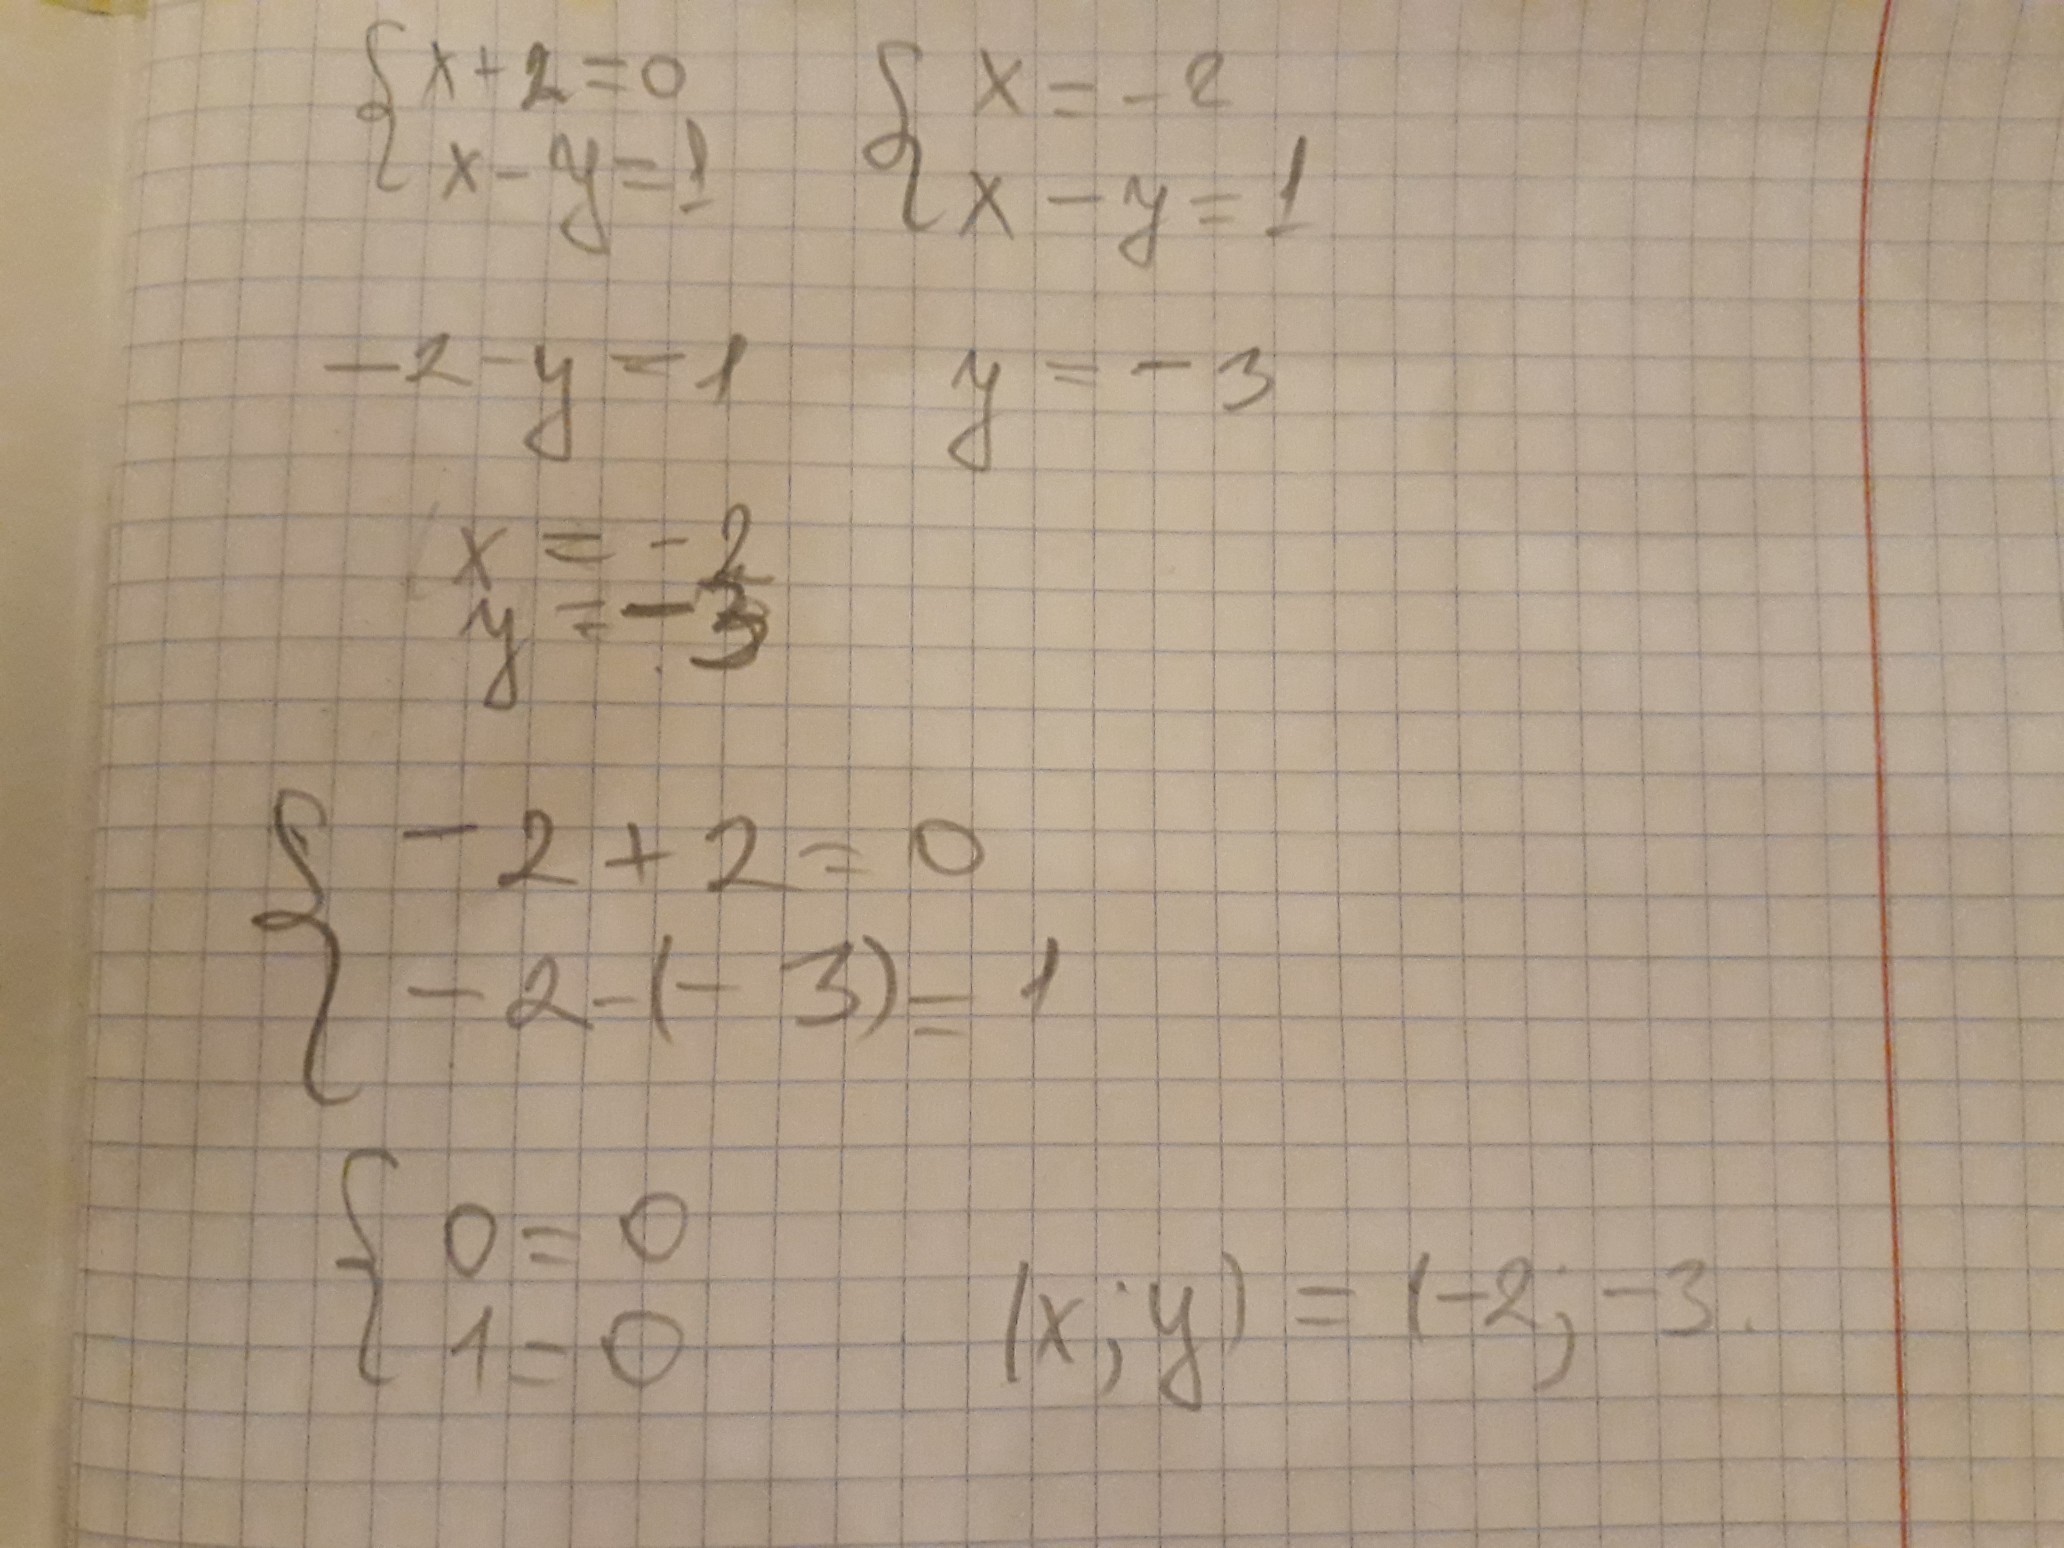 { x + 2 = 0   { x = - 2
x - y = 1   x - y = 1
- 2 - y = 1   y = - 3
x = - 2
y = - 3
{ - 2 + 2 = 0
- 2 - (- 3) = 1
{ 0 = 0
1 = 0   (x; y) = (-2; -3.